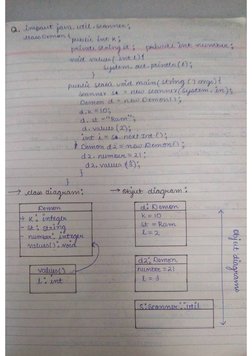 Q. import java.util.scanner;
class Demon {
public int k;
private string st; private int number;
void values (int l) {
system.out.println(l);
}
public static void main (string [] args) {
scanner s = new scanner(system.in);
Demon d = new Demon();
d.k = 10;
d.st = "Ram";
d.values (2);
int i = s.next Int ();
Demon d2 = new Demon();
d2.number = 21;
d2.values (3);
}
→ class diagram:
→ Object diagram:
Demon
+ k : integer
- st : string
- number : integer
values() : void
values()
l : int
d : Demon
k = 10
st = Ram
l = 2
d2 : Demon
number = 21
l = 3
S : Scanner : util
Object diagrams